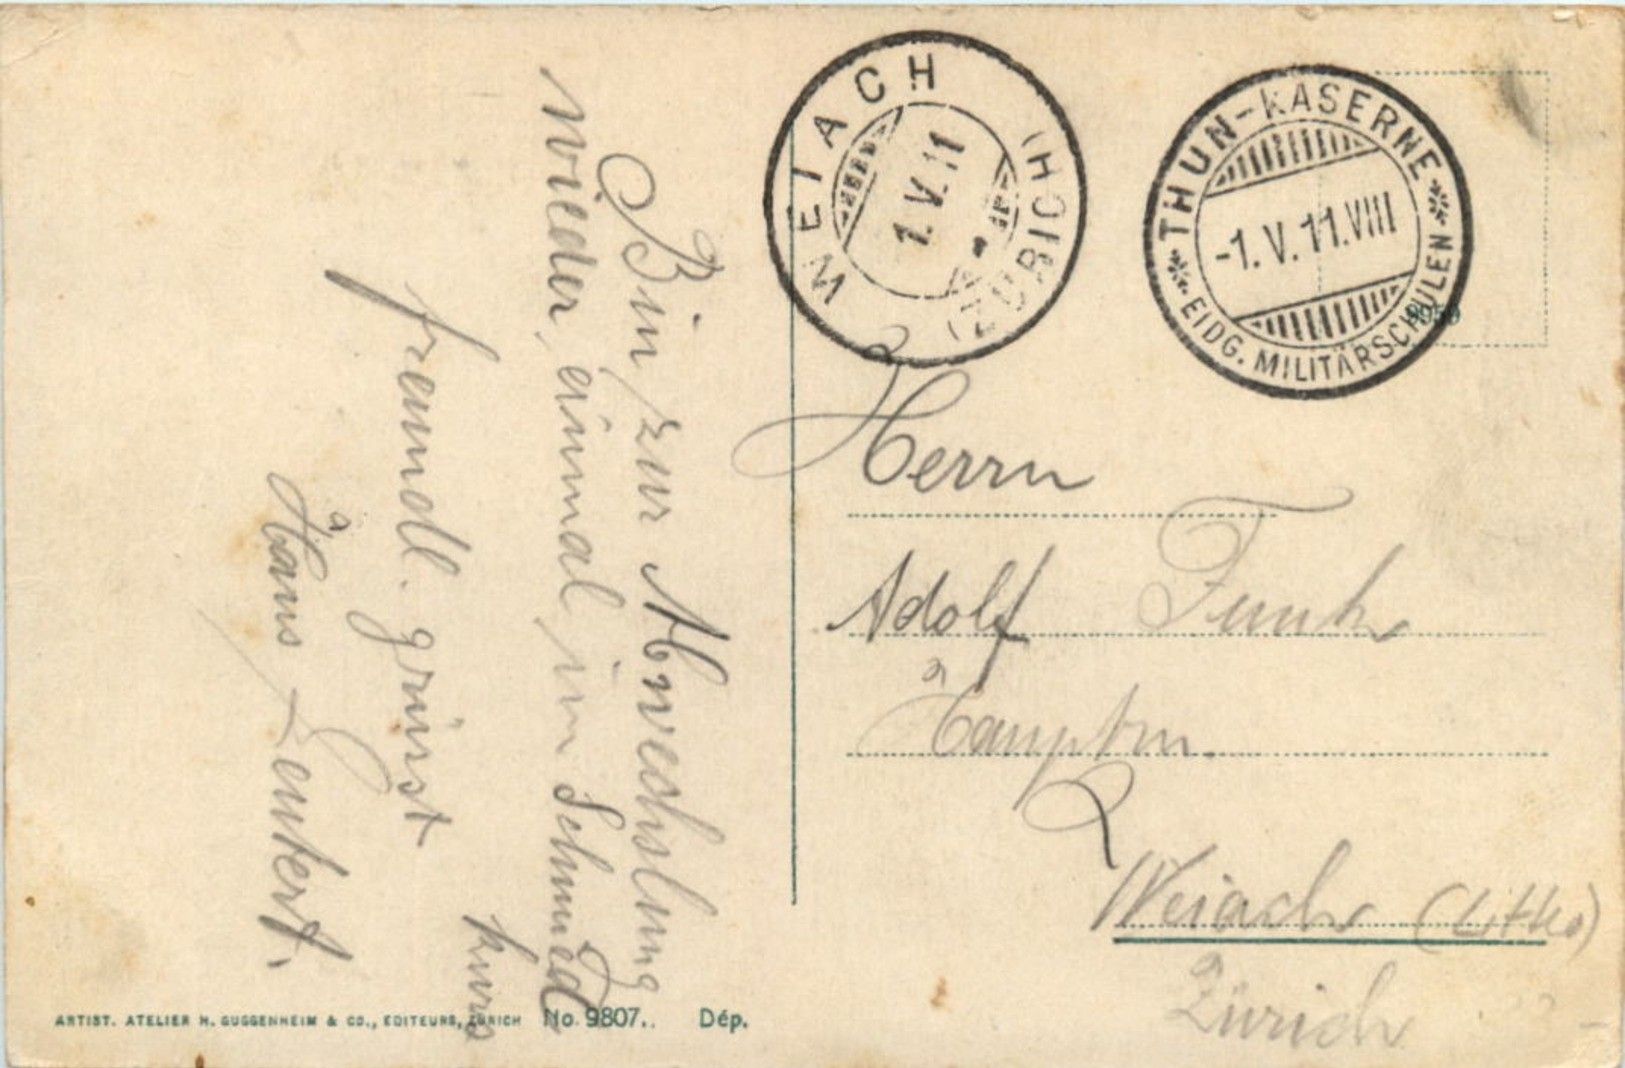 WEIACH
(ZÜRICH)
1.V.11
THUN-KASERNE
-1.V.11.VIII
EIDG. MILITÄRSCHULEN
Bin zur Abwechslung
wieder einmal im Schmied
kurs
freundl. grüsst
Hans
Herrn
Adolf Funk
Hauptm.
Weiach
Zürich
ARTIST. ATELIER H. GUGGENHEIM & CO., EDITEURS, ZÜRICH No. 9807. Dép.